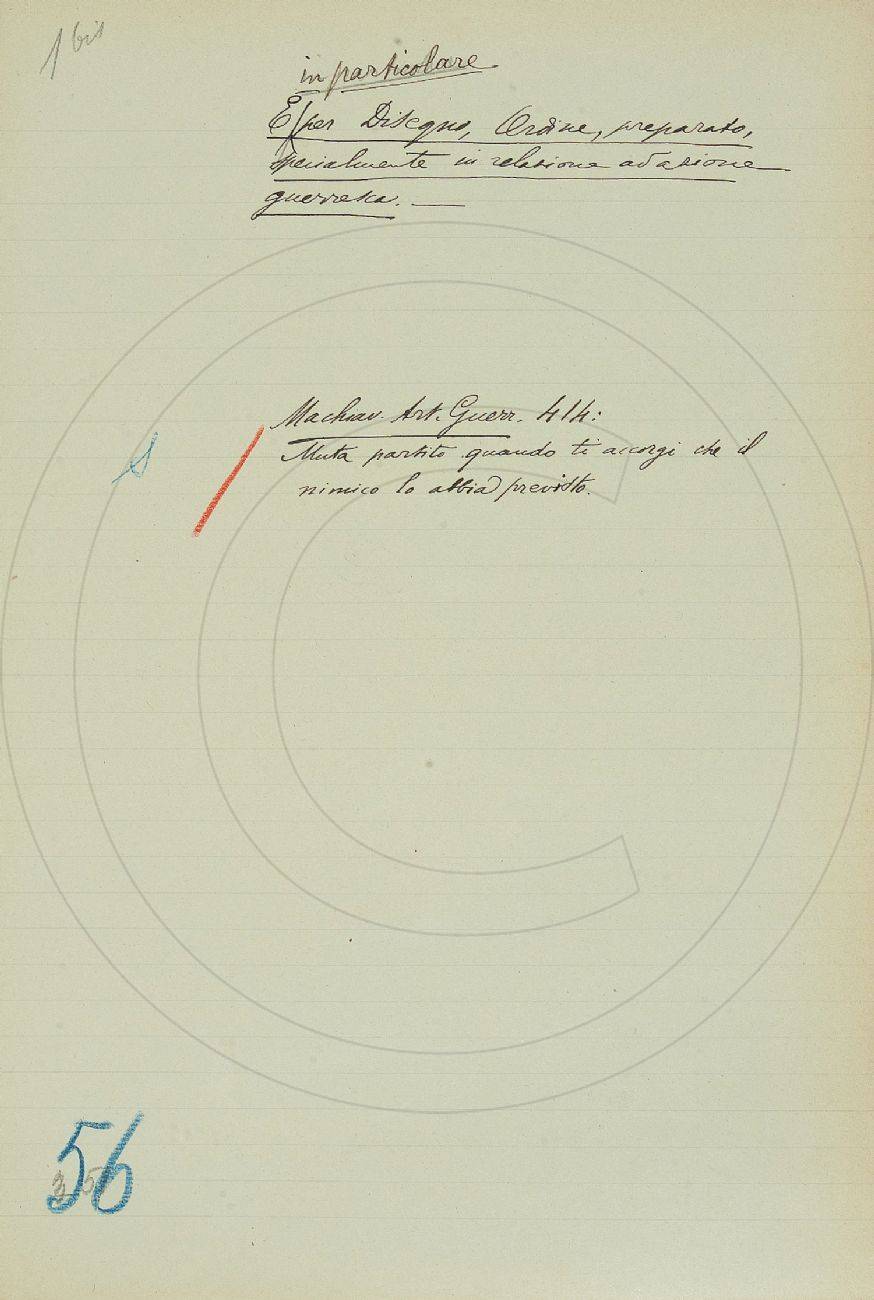 1 bis
in particolare
E per Disegno, Ordine, preparato,
specialmente in relazione ad azione
guerresca. —
Machiav. Art. Guerr. 414:
Muta partito quando ti accorgi che il
nimico lo abbia previsto.
56